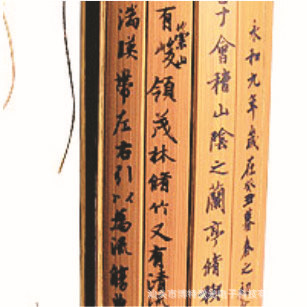 永和九年歲在癸丑暮春之初
于會稽山陰之蘭亭脩
有崇山峻領茂林脩竹又有清
湍暎帶左右引以為流觴